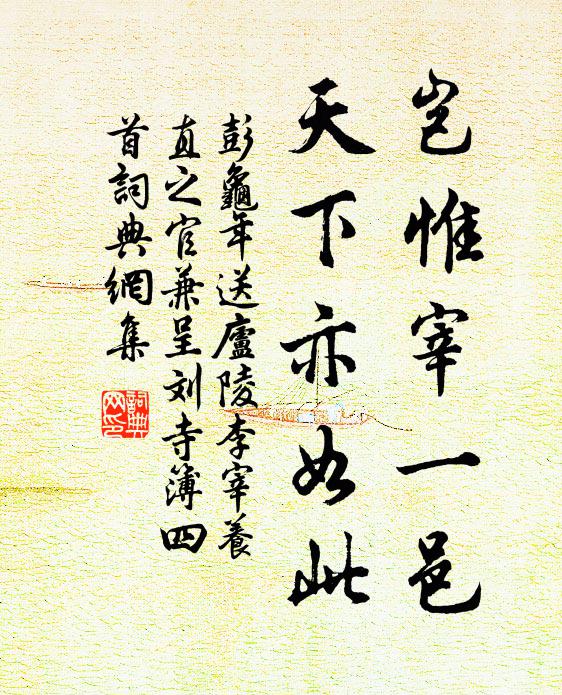 岂惟宰一邑
天下亦如此
彭龜年送廬陵李宰養
直之官兼呈刘寺簿四
首詞典網集
詞典
网印